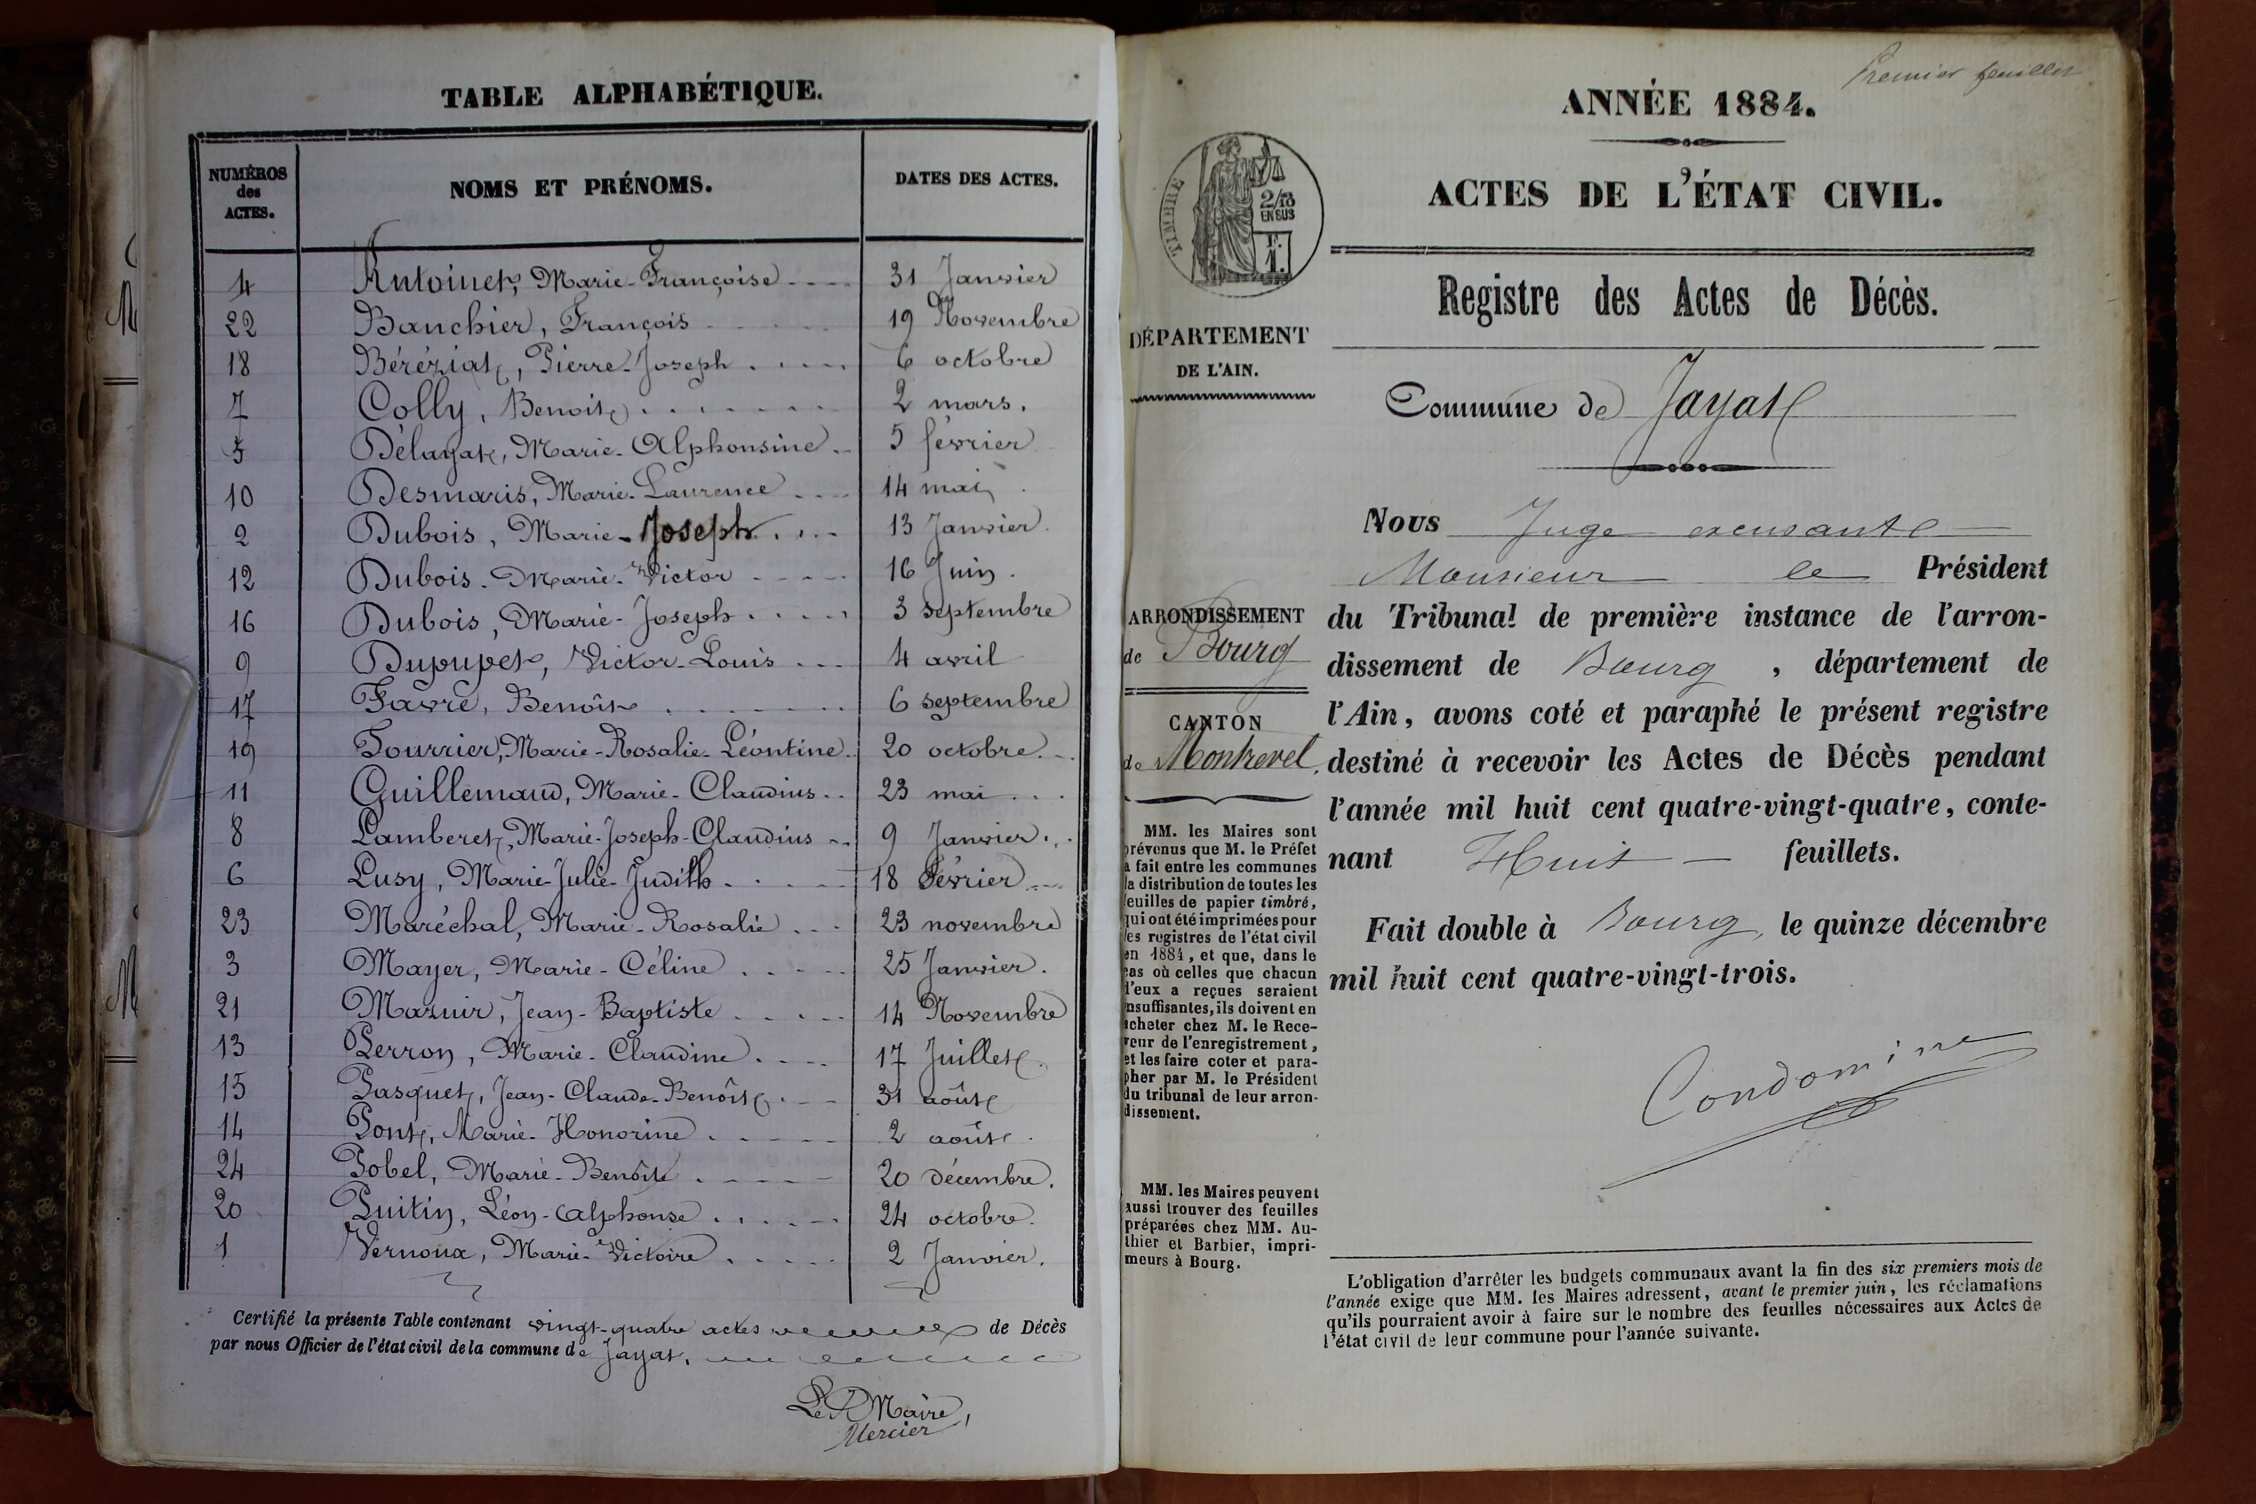 TABLE ALPHABÉTIQUE.
NUMÉROS des ACTES.
NOMS ET PRÉNOMS.
DATES DES ACTES.
4 Antoinet, Marie-Françoise 31 Janvier
22 Banchier, François 19 Novembre
18 Béréziat, Pierre-Joseph 6 octobre
7 Colly, Benoit 2 mars.
5 Délayat, Marie-Alphonsine 5 février
10 Desmaris, Marie-Laurence 14 mai
2 Dubois, Marie-Joseph 13 Janvier
12 Dubois. Marie-Victor 16 Juin.
16 Dubois, Marie-Joseph 3 septembre
9 Dupupet, Victor-Louis 4 avril
17 Favre, Benoît 6 septembre
19 Fourrier, Marie-Rosalie-Léontine 20 octobre
11 Guillemaud, Marie-Claudius 23 mai
8 Lamberet, Marie-Joseph-Claudius 9 Janvier
6 Lusy, Marie-Julie-Judith 18 février
23 Maréchal, Marie-Rosalie 23 novembre
3 Mayer, Marie-Céline 25 Janvier.
21 Mazuir, Jean-Baptiste 14 Novembre
13 Perron, Marie-Claudine 17 Juillet
15 Pasquet, Jean-Claude-Benoît 31 août
14 Pont, Marie-Honorine 2 août
24 Pobel, Marie-Benoîte 20 décembre.
20 Puitin, Léon-Alphonse 24 octobre.
1 Vernoux, Marie-Victoire 2 Janvier.
Certifié la présente Table contenant vingt-quatre actes de Décès
par nous Officier de l'état civil de la commune de Jayat.
Le Maire,
Mercier
Premier feuillet
ANNÉE 1884.
ACTES DE L'ÉTAT CIVIL.
TIMBRE
2/10
EN SUS
F.
1.
Registre des Actes de Décès.
DÉPARTEMENT
DE L'AIN.
Commune de Jayat
ARRONDISSEMENT
de Bourg
CANTON
de Montrevel.
MM. les Maires sont
prévenus que M. le Préfet
a fait entre les communes
la distribution de toutes les
feuilles de papier timbré,
qui ont été imprimées pour
les registres de l'état civil
en 1884, et que, dans le
cas où celles que chacun
d'eux a reçues seraient
insuffisantes, ils doivent en
acheter chez M. le Rece-
veur de l'enregistrement,
et les faire coter et para-
pher par M. le Président
du tribunal de leur arron-
dissement.
MM. les Maires peuvent
aussi trouver des feuilles
préparées chez MM. Au-
thier et Barbier, impri-
meurs à Bourg.
Nous Juge excusant
Monsieur le Président
du Tribunal de première instance de l'arron-
dissement de Bourg, département de
l'Ain, avons coté et paraphé le présent registre
destiné à recevoir les Actes de Décès pendant
l'année mil huit cent quatre-vingt-quatre, conte-
nant Huit feuillets.
Fait double à Bourg, le quinze décembre
mil huit cent quatre-vingt-trois.
Condomine
L'obligation d'arrêter les budgets communaux avant la fin des six premiers mois de
l'année exige que MM. les Maires adressent, avant le premier juin, les réclamations
qu'ils pourraient avoir à faire sur le nombre des feuilles nécessaires aux Actes de
l'état civil de leur commune pour l'année suivante.